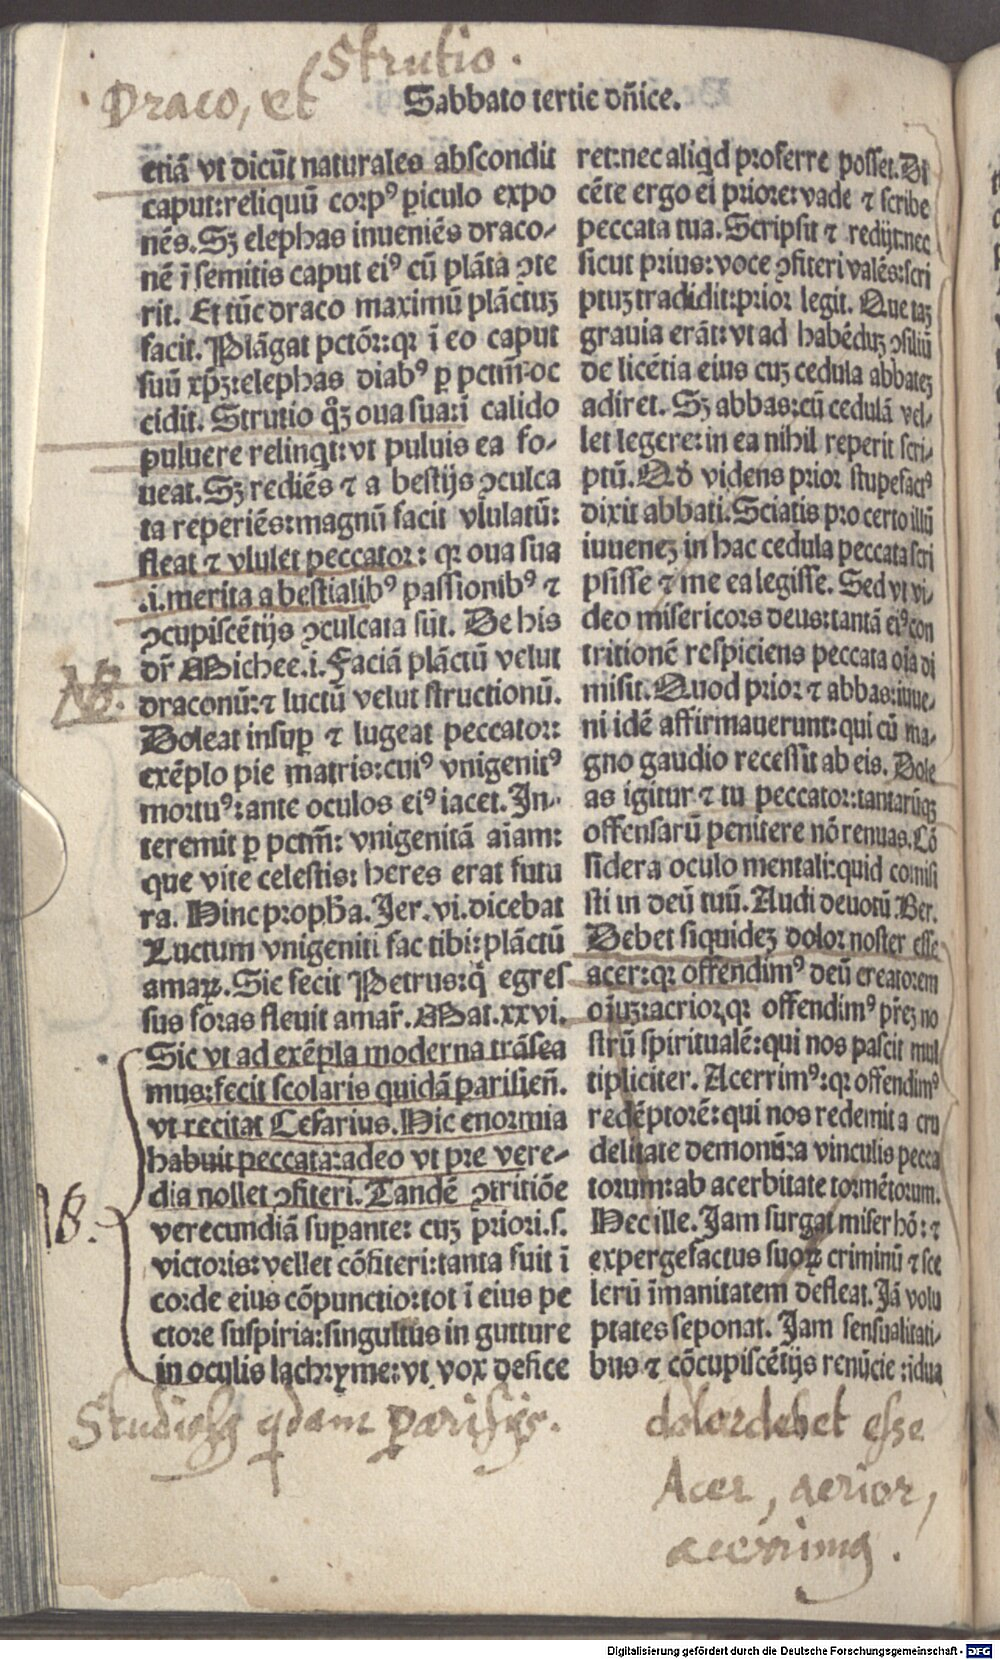 Strutio.
Draco, et
Sabbato tertie dñice.
etiã vt dicũt naturales abscondit
caput:reliquũ corpꝰ piculo expo
nẽs. Sꝫ elephas inueniẽs draco-
nẽ ĩ semitis caput eiꝰ cũ plãta ꝯte
rit. Et tũc draco maximũ plãctuꝫ
facit. Plãgat pctõr: qꝛ ĩ eo caput
suũ xp̃ꝫ: elephas diabꝰ ꝑ pctm̃ oc
cidit. Strutio qñꝫ oua sua: ĩ calido
puluere relinqt: vt puluis ea fo-
ueat. Sꝫ rediẽs ⁊ a bestijs ꝯculca
ta reperiẽs: magnũ facit vlulatũ:
fleat ⁊ vlulet peccator: qꝛ oua sua
.i. merita a bestialibꝰ passionibꝰ ⁊
ꝯcupiscẽtijs ꝯculcata sũt. De his
dr̃ Michee. i. Faciã plãctũ velut
NB.
draconũ: ⁊ luctũ velut structionũ.
Doleat insuꝑ ⁊ lugeat peccator:
exẽplo pie matris: cuiꝰ vnigenitꝰ
mortuꝰ: ante oculos eiꝰ iacet. In-
teremit ꝑ pctm̃: vnigenitã aĩam:
que vite celestis: heres erat futu
ra. Hinc propha. Jer. vi. dicebat
Luctum vnigeniti fac tibi: plãctũ
amaꝝ. Sic fecit Petrus: q̃ egres
sus foras fleuit amar̃. Mat. xxvi.
Sic vt ad exẽpla moderna trãsea
mus: fecit scolaris quidã parisieñ.
vt recitat Cesarius. Hic enormia
habuit peccata: adeo vt pre vere-
dia nollet ꝯfiteri. Tandẽ ꝯtritiõe
NB.
verecundiã supante: cuꝫ priori. s.
victoris: vellet cõfiteri: tanta fuit ĩ
corde eius cõpunctio: tot ĩ eius pe
ctore suspiria: singultus in gutture
in oculis lachryme: vt vox defice
ret: nec aliqd proferre posset. Di
cẽte ergo ei priore: vade ⁊ scribe
peccata tua. Scripsit ⁊ redijt: nec
sicut prius: voce ꝯfiteri valẽs: scri
ptuꝫ tradidit: prior legit. Que taꝫ
grauia erãt: vt ad habẽduꝫ ꝯsiliũ
de licẽtia eius cuꝫ cedula abbateꝫ
adiret. Sꝫ abbas: cũ cedulã vel-
let legere: in ea nihil reperit scri-
ptũ. Qð videns prior stupefactꝰ
dixit abbati. Sciatis pro certo illũ
iuueneꝫ in hac cedula peccata scri
psisse ⁊ me ea legisse. Sed vt vi-
deo misericors deus: tantã eiꝰ con
tritionẽ respiciens peccata oĩa di
misit. Quod prior ⁊ abbas: iuue-
ni idẽ affirmauerunt: qui cũ ma-
gno gaudio recessit ab eis. Dole
as igitur ⁊ tu peccator: tantarũqꝫ
offensarũ penitere nõ renuas. Cõ
sidera oculo mentali: quid comisi
sti in deũ tuũ. Audi deuotũ Ber.
Debet siquideꝫ dolor noster esse
acer: qꝛ offendimꝰ deũ creatorem
oĩuꝫ: acrior, qꝛ offendimꝰ pr̃eꝫ no
strũ spiritualẽ: qui nos pascit mul
tipliciter. Acerrimꝰ: qꝛ offendimꝰ
redẽptorẽ: qui nos redemit a cru
delitate demonũ: a vinculis pecca
torum: ab acerbitate tormẽtorum.
Hec ille. Jam surgat miser hõ: ⁊
expergefactus suoꝝ criminũ ⁊ sce
lerũ ĩmanitatem defleat. Jã volu
ptates seponat. Jam sensualitati-
bus ⁊ cõcupiscẽtijs renũcie: idua
Studiosꝫ qdam parisijs.
dolor debet esse
Acer, acrior,
acerrimꝰ.
Digitalisierung gefördert durch die Deutsche Forschungsgemeinschaft - DFG